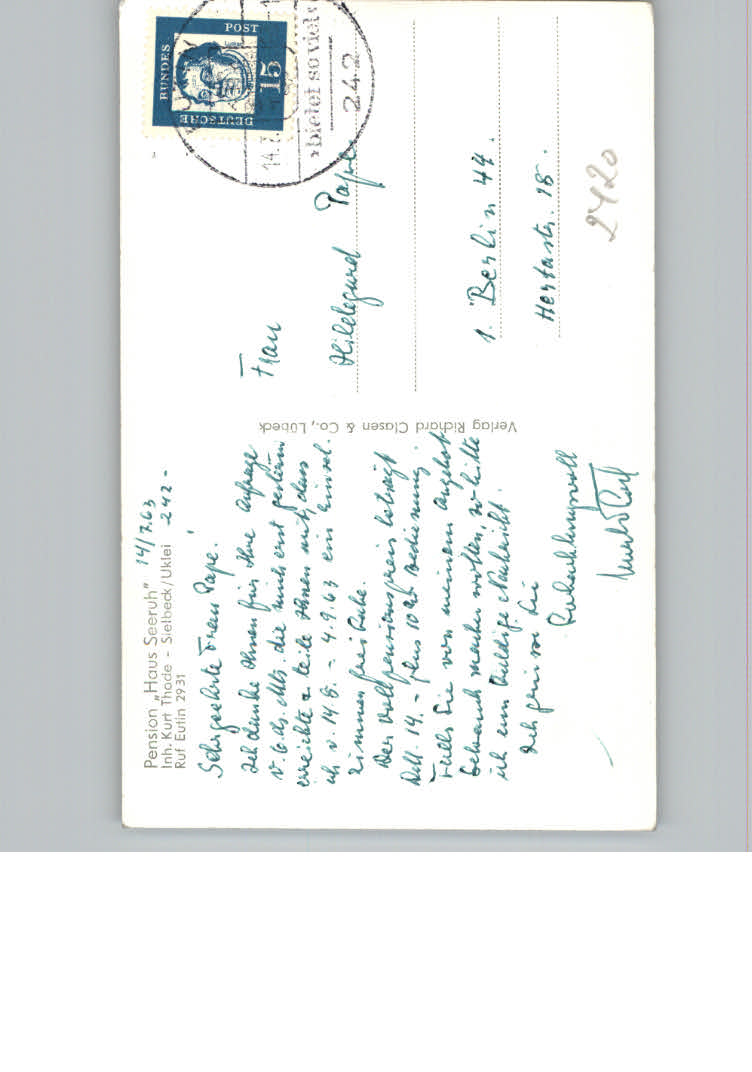 Pension „Haus Seeruh"
Inh. Kurt Thode - Sielbeck/Uklei
Ruf Eutin 2931
14/7.63
242-
Sehr geehrte Frau Pape.
Ich danke Ihnen für Ihre Anfrage
v. 6. ds. Mts. die mich erst gestern
erreichte u. teile Ihnen mit, dass
ich v. 14.8. - 4.9.63 ein Einzel.
zimmer frei habe.
Der Vollpensionspreis beträgt
DM. 14.- plus 10% Bedienung.
Falls Sie von meinem Angebot
Gebrauch machen wollen, so bitte
ich um baldige Nachricht.
Ich grüsse Sie
Hochachtungsvoll
Verlag Richard Clasen & Co., Lübeck
DEUTSCHE
BUNDES
POST
15
14.7.
»bietet so viel«
242
Frau
Hildegard Pape
1. Berlin 44.
Hertastr. 18.
2420